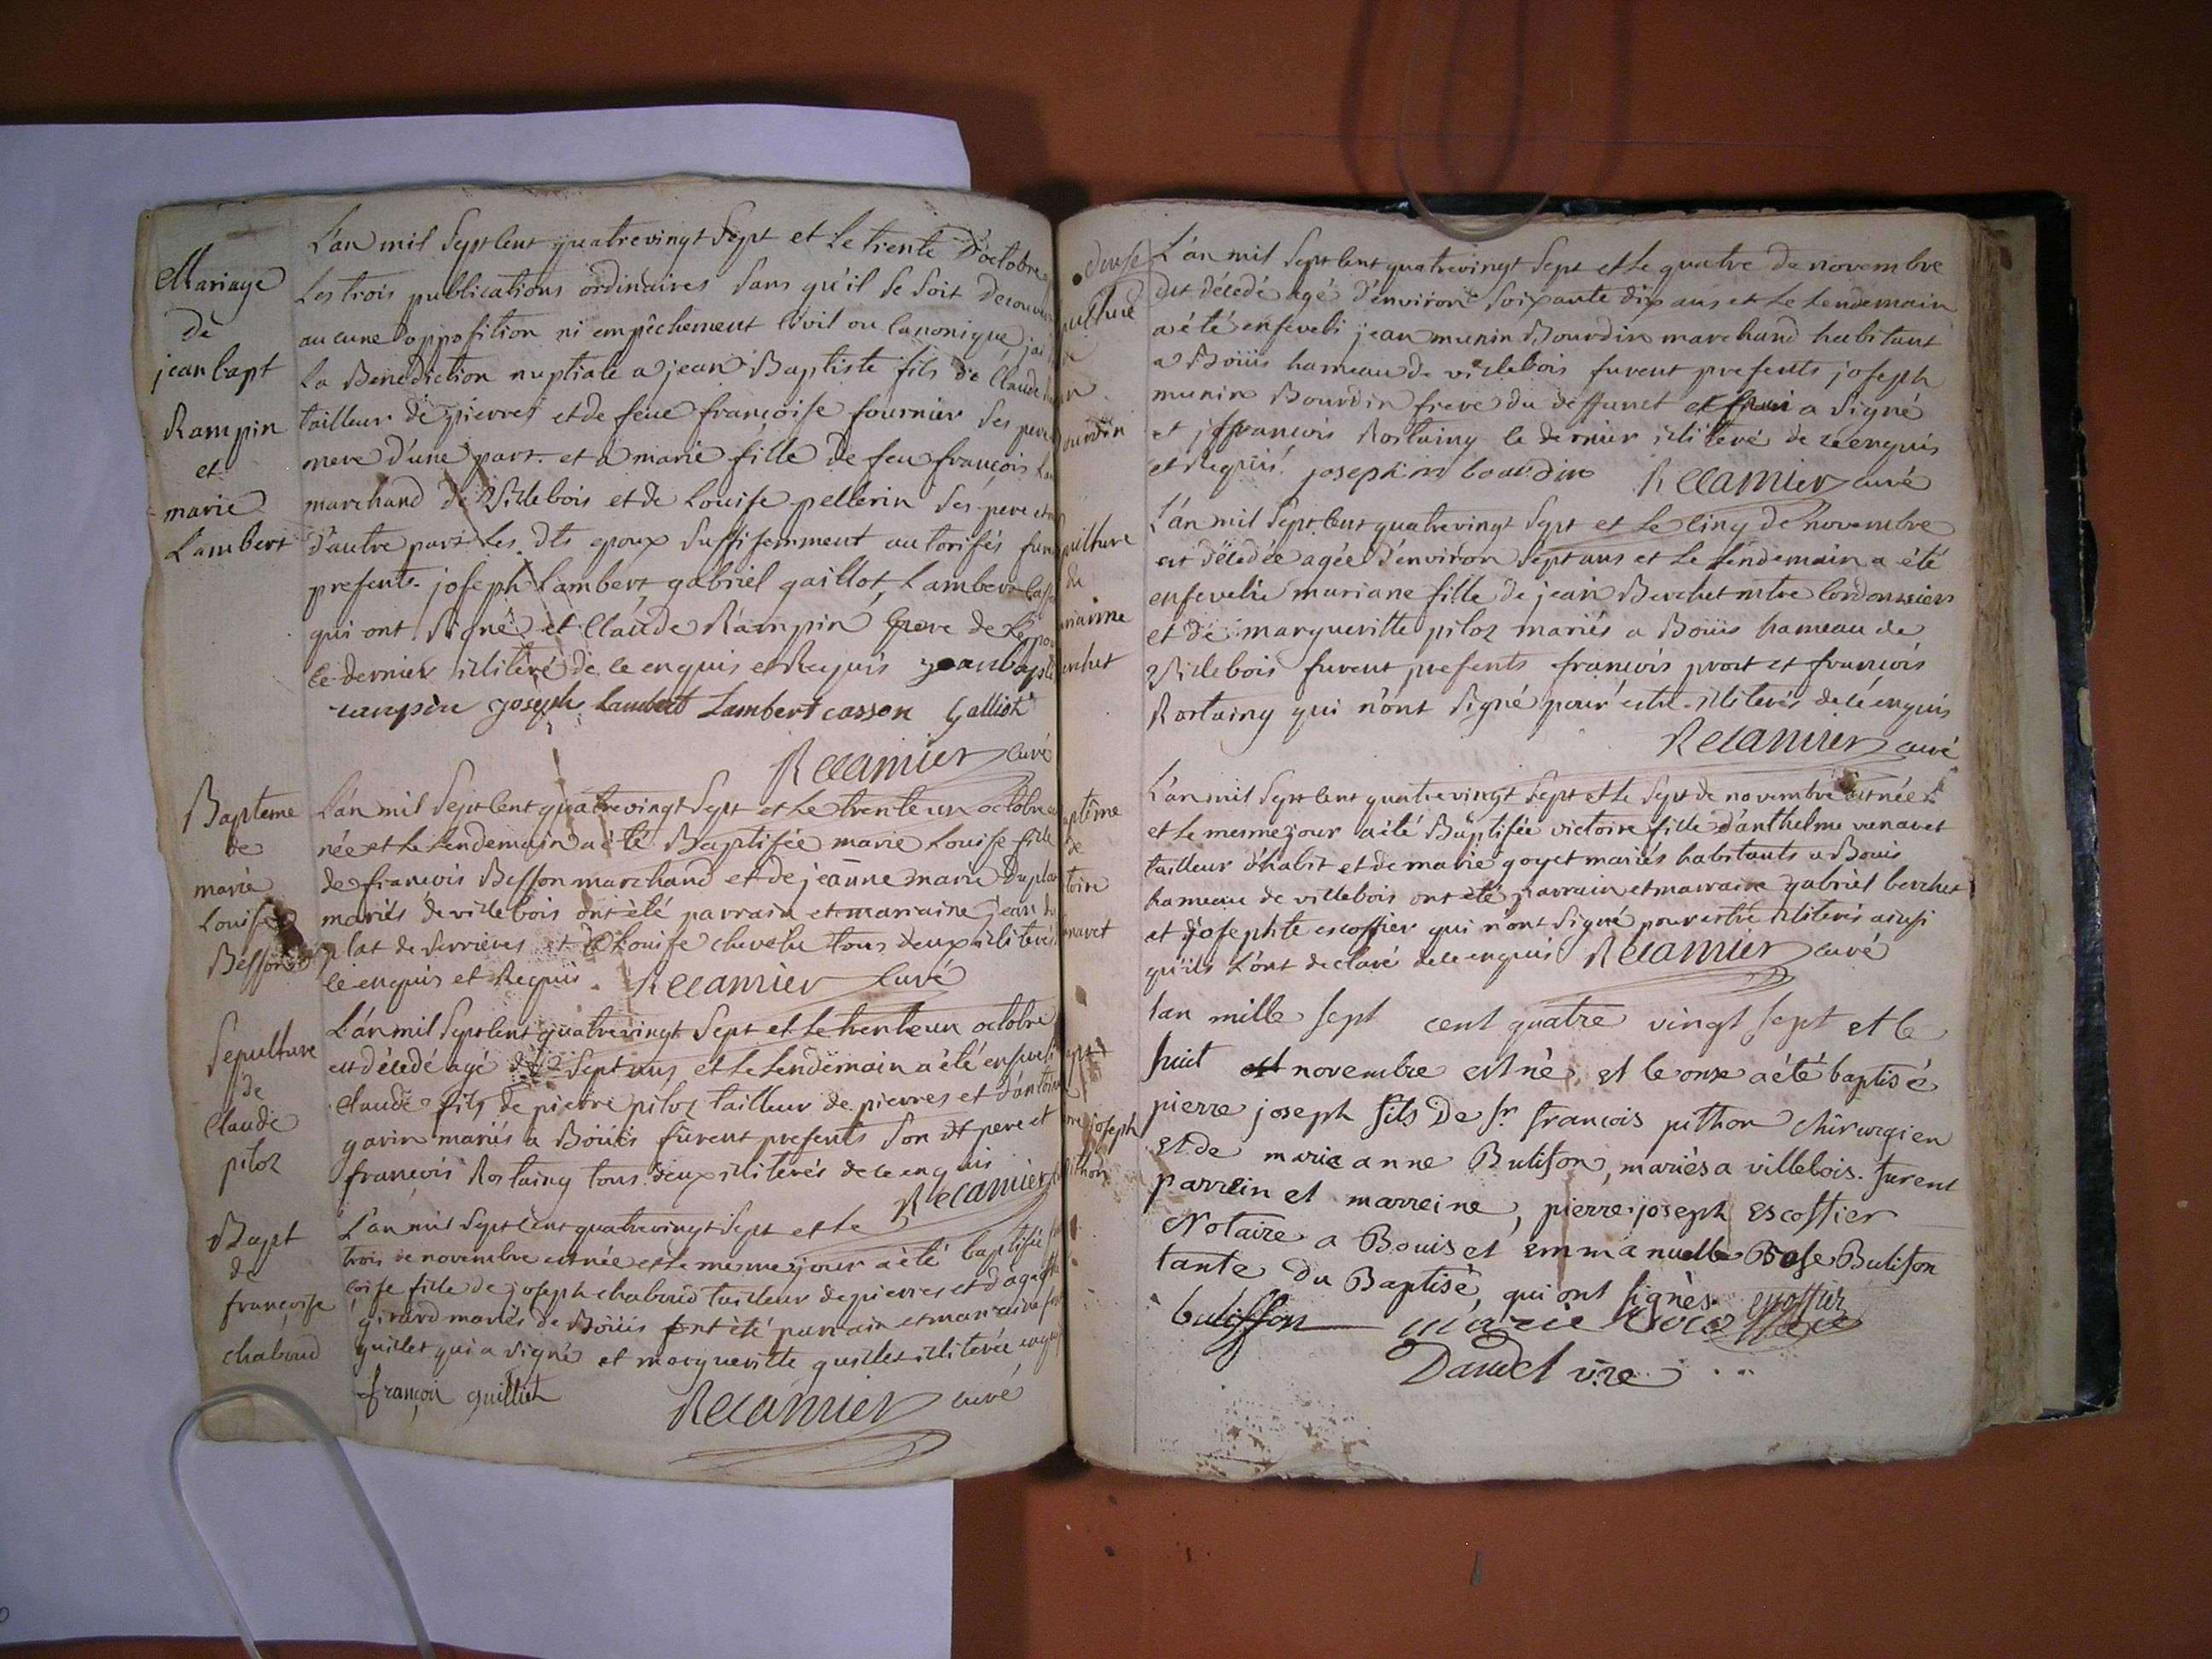 Mariage
de
jean bapt
Rampin
et
marie
Lambert
L'an mil Sept Cent quatrevingt Sept et Le trente D'octobre
Les trois publications ordinaires Sans qu'il Se Soit decouvert
aucune opposition ni empêchement Civil ou Canonique j'ai
La Benediction nuptiale a jean Baptiste fils de Claude
tailleur de pierres et de feue françoise fournier Ses pere
mere d'une part. et a marie fille de feu françois
marchand de Villebois et de Louise pellerin Ses pere et
d'autre part Les dts epoux Suffisemment autorisés
presents. joseph Lambert, gabriel gaillot, Lambert
qui ont Signé et Claude Rampin frere de
le dernier illiteré de ce enquis et Requis jean baptis
rampin joseph Lambert Lambert casson Galliot
Recamier Curé
Bapteme
de
marie
Louise
Besson
L'an mil Sept Cent quatrevingt Sept et Le trente un octobre
née et Le Lendemain a été Baptisée marie Louise fille
de francois Besson marchand et de jeanne marie Dupla
mariés de villebois ont été parrain et marraine jean du
plat de Serrieres et de Louise chevelu tous deux illiterés
ce enquis et Requis. Recamier Curé
Sepulture
de
Claude
piloz
L'an mil Sept Cent quatrevingt Sept et Le trente un octobre
est décédé agé de Sept ans et Le Lendemain a été enseveli
Claude fils de pierre piloz tailleur de pierres et d'antoin
gavin mariés à Boüis fürent presents Son dt pere et
françois Rostaing tous deux illiterés de ce enquis
Recamier
Bapt
de
françoise
chaboud
L'an mil Sept Cent quatrevingt Sept et Le
trois de novembre est née et le meme jour a été baptisée
coise fille de joseph chaboud tailleur de pierres et d'agat
girard mariés de Boüis ont été parrain et marraine
guillet qui a signé et margueritte guillet illiterée
françoi guilliet
Recamier curé
L'an mil Sept Cent quatrevingt Sept et Le quatre de novembre
est décédé agé d'environ Soixante dix ans et Le Lendemain
a été enseveli jean munin Bourdin marchand habitant
a Boüis hameau de villebois furent presents joseph
munin Bourdin frere du deffunct a Signé
et francois Rostaing le dernier illiteré de ce enquis
et Requis. joseph m bourdin Recamier curé
pulture
du
marianne
erchet
L'an mil Sept Cent quatrevingt Sept et Le Cinq de novembre
est décédée agée d'environ Sept ans et Le Lendemain a été
ensevelie mariane fille de jean Berchet mtre Cordonnier
et de margueritte piloz mariés a Boüis hameau de
Villebois furent presents francois prost et françois
Rostaing qui n'ont Signé pour estre illiterés de ce enquis
Recamier curé
aptême
de
toire
enavet
L'an mil Sept Cent quatrevingt Sept et Le Sept de novembre est née
et Le mesme jour a été Baptisée victoire fille d'anthelme venavet
tailleur d'habit et de marie goyet mariés habitants a Bouis
hameau de villebois ont été parrain et marraine gabriel berchet
et josephte escoffier qui n'ont Signé pour estre illiterés ainsi
qu'ils L'ont declaré de ce enquis Recamier curé
apt
rre joseph
pithon
Lan mille sept cent quatre vingt sept et le
huit novembre est né, et le onze a été baptisé
pierre joseph fils De sr. françois pithon chirurgien
et de marie anne Bulifon, mariés a villebois. furent
parrein et marreine, pierre joseph escoffier
Notaire a Bouis et emmanuelle Rose Bulifon
tante du Baptisé, qui ont signés. escoffier
buliffon marie
Dandel vre